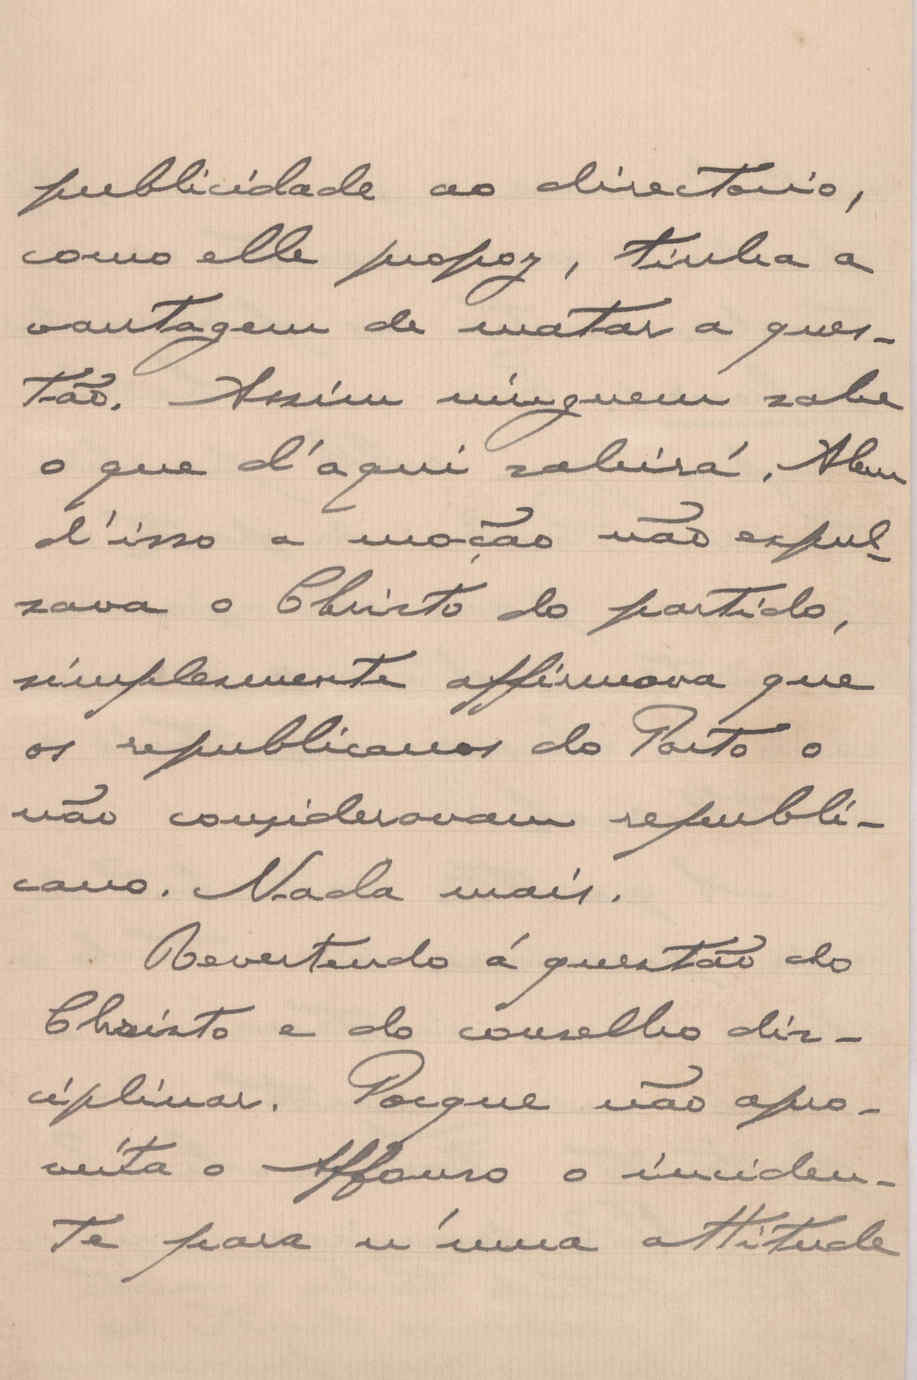 publicidade ao directorio,
como elle propoz, tinha a
vantagem de matar a ques-
tão. Assim ninguem sabe
o que d'aqui sahirá. Alem
d'isso a moção não expul-
sava o Christo do partido,
simplesmente affirmava que
os republicanos do Porto o
não consideravam republi-
cano. Nada mais.
Revertendo á questão do
Christo e do conselho dis-
ciplinar. Porque não apro-
veita o Affonso o inciden-
te para n'uma attitude